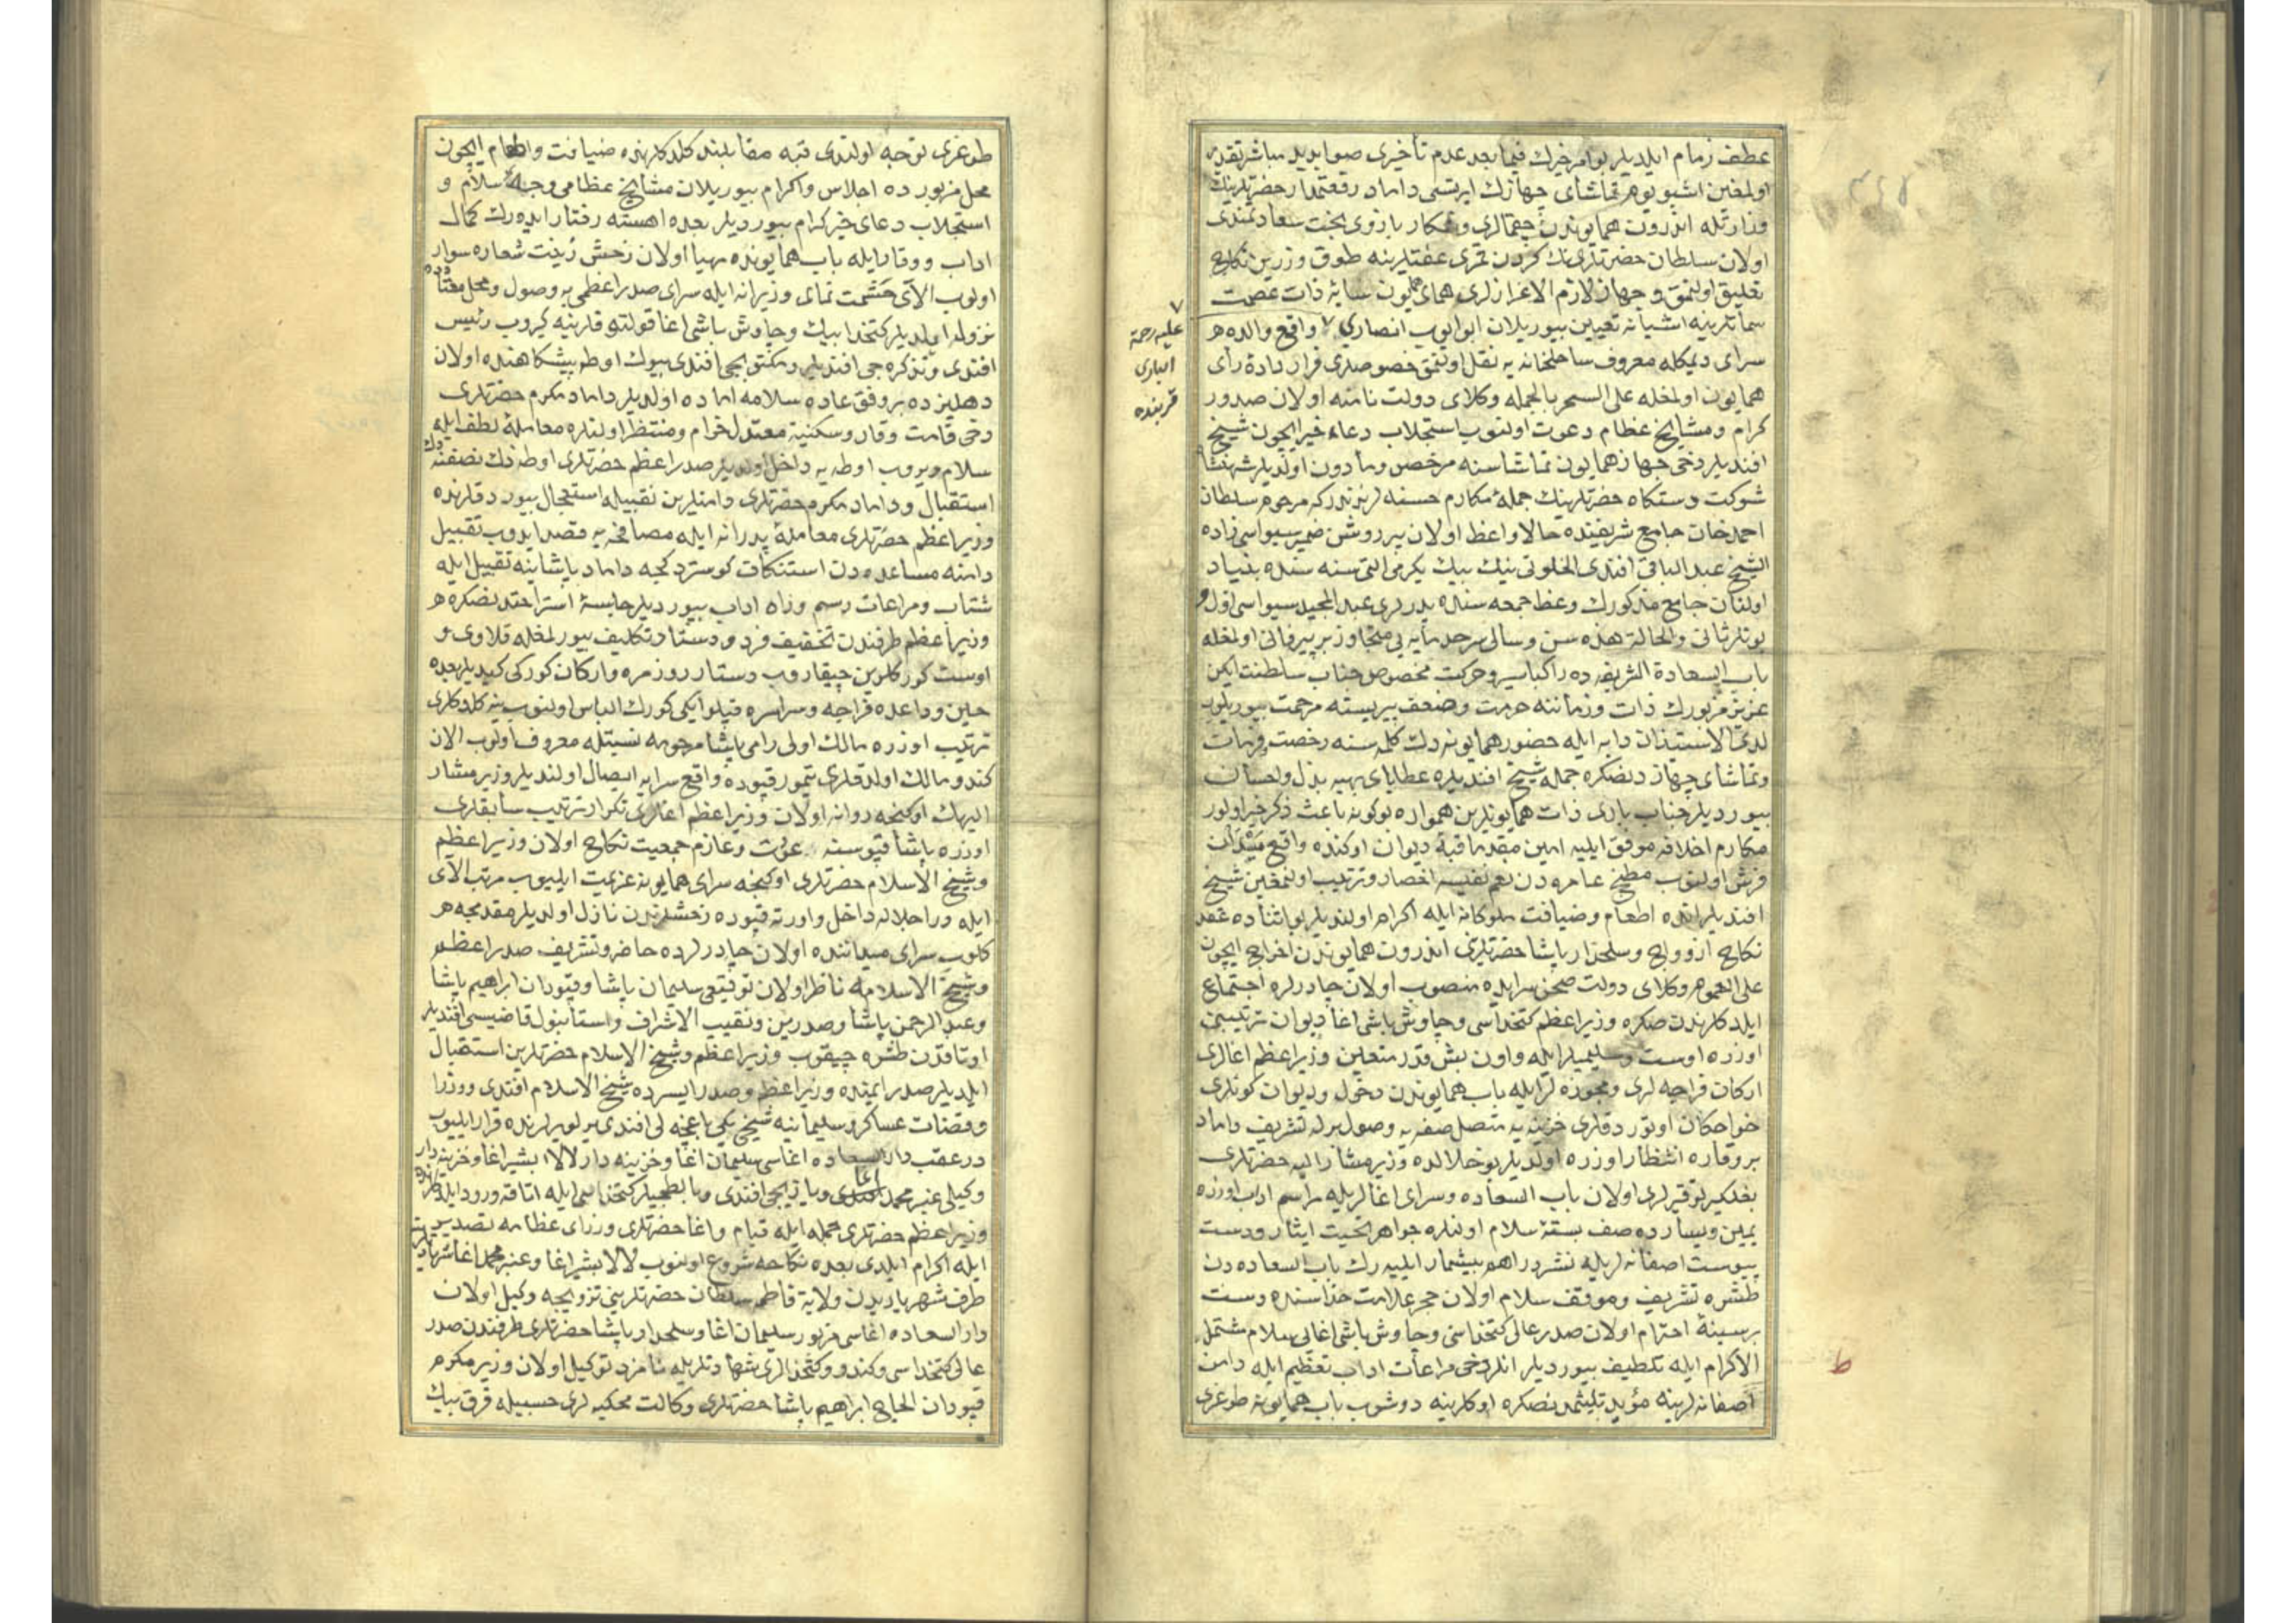 عطف زمام ایلدیلر بو امر خیرك فیما بعد عدم تأخیری صوابدید مباشر تقدیر
اولمغین اشبو یوم تماشای جهازك ایرتسی داماد رفعتمدار حضرتلرینك
وزارتله اندرون همایوندن چقمالری و شكار بازوی بخت سعادتمندی
اولان سلطان حضرتلرینك كردن قمری عفتلرینه طوق وزرین نكاح
تعلیق اولنمق و جهاز لازم الاعزازلری همای همایون سایهٔ ذات عصمت
سماتلرینه اشیانه تعیین بیوریلان ابو ایوب انصاری ٧ واقع والده
سرای دیمكله معروف ساحلخانه یه نقل اولنمق خصوصلری قرار دادهٔ رأی
همایون اولمغله علی السحر بالجمله وكلای دولت نامنه اولان صدور
كرام و مشایخ عظام دعوت اولنوب استجلاب دعاء خیر ایچون شیخ
افندیلر دخی جهاز همایون تماشاسنه مرخص و مأذون اولدیلر شهنشاه
شوكت دستكاه حضرتلرینك جملهٔ مكارم حسنه لرندندركه مرحوم سلطان
احمد خان جامع شریفنده حالا واعظ اولان پیر روشن ضمیر سیواسی زاده
الشیخ عبد الباقی افندی الخلوتی نینك بیك یكرمی التی سنه سنده بنیاد
اولنان جامع مذكورك وعظ جمعه سنده پدرلری عبد المجید سیواسی اول و
بونلر ثانی والحالة هذه سن و سالی سرحد مأیه یی متجاوز بر پیر فانی اولمغله
باب السعادة الشریفه ده راكبا سیر و حركت مخصوص جناب سلطنت ایكن
عزیز مزبورك ذات و زماننه حرمت و ضعف پیریسنه مرحمت بیوریلوب
لدی الاستیذان دابه ایله حضور همایونه دك كلمه سنه رخصت فرمان
و تماشای جهازدنصكره جمله شیخ افندیلره عطایای بهیه بذل و احسان
بیوردیلر جناب باری ذات همایونلرین همواره بوكونه باعث ذكر خیر اولور
مكارم اخلاقه موفق ایلیه امین مقدما قبهٔ دیوان اوكنده واقع میدان
فرش اولنوب مطبخ عامره دن نعم نفیسه احضار و ترتیب اولنمغین شیخ
افندیلر انده اطعام و ضیافت ملوكانه ایله اكرام اولندیلر بو اثناده عقد
نكاح ازدواج و سلحدار پاشا حضرتلری اندرون همایوندن اخراج ایچون
علی العموم وكلای دولت صحن سرایده منصوب اولان چادرلره اجتماع
ایلدكلرندن صكره وزیر اعظم كتخداسی و چاوش باشی اغا دیوان ترتیبی
اوزره اوست و سلیمیلر ایله و اون بش قدر متعین وزیر اعظم اغالری
اركان فراجه لری و مجوزه لر ایله باب همایوندن دخول و دیوان كونلری
خواجكان اوتوردقلری خزینه یه متصل صفه یه وصول برله تشریف داماد
پر وقاره انتظار اوزره اولدیلر بو خلالده وزیر مشار الیه حضرتلری
بغلكیر توقیرلری اولان باب السعاده و سرای اغالریله مراسم اداب اوزره
یمین و یسارده صف بستهٔ سلام اولنلره جواهر تحیت ایثار و دست
پیوست اصفانه لریله نشر دراهم بیشمار ایلیه رك باب السعاده دن
طشره تشریف و موقف سلام اولان حجر علامت حذاسنده دست
بر سینهٔ احترام اولان صدر عالی كتخداسی و چاوش باشی اغایی سلام مشتمل
الاكرام ایله تلطیف بیوردیلر انلر دخی مراعات اداب تعظیم ایله دامن
اصفانه لرینه مؤید تلیثمدنصكره اوكلرینه دوشوب باب همایونه طوغری
٧
علیه رحمة
الباری
قربنده
ط
طوغری توجه اولندی قبه مقابلنه كلدكلرنده ضیافت و اطعام ایچون
محل مزبورده اجلاس و اكرام بیوریلان مشایخ عظامی وجههٔ سلام و
استجلاب دعای خیر كرام بیوردیلر بعده اهسته رفتار ایده رك كمال
اداب و وقار ایله باب همایونده مهیا اولان رخش زینت شعاره سوار
اولوب الای حشمت نمای وزیرانه ایله سرای صدر اعظمی یه وصول و محل معتاده
نزوله ایلدیلر كتخدا بیك و چاوش باشی اغا قولتوقلرینه كیروب رئیس
افندی و تذكره جی افندیلر و مكتوبجی افندی بیوك اوطه پیشكاهنده اولان
دهلیزده بر وفق عاده سلامه اماده اولدیلر داماد مكرم حضرتلری
دخی قامت وقار و سكنیه معتدل خرام و منتظر اولنلره معاملهٔ لطف ایله
سلام ویروب اوطه یه داخل اولدیلر صدر اعظم حضرتلری اوطه نك نصفنه دك
استقبال و داماد مكرم حضرتلری دامنلرین تقبیله استعجال بیوردقلرنده
وزیر اعظم حضرتلری معاملهٔ پدرانه ایله مصافحه یه قصد ایدوب تقبیل
دامنه مساعده دن استنكاف كوستردكجه داماد پاشا ینه تقبیل ایله
شتاب و مراعات رسم و راه اداب بیوردیلر جلسهٔ استراحتدنصكره
وزیر اعظم طرفندن تخفیف فرو و دستار تكلیف بیورلمغله قلاوی و
اوست كوركلرین چیقاروب دستار روزمره و اركان كوركی كیدیلر بعده
حین وداعده فراجه و سراسره قپلو ایكی كورك الباس اولنوب ینه كلدكلری
ترتیب اوزره مالك اولی رامی پاشا مرحومه نسبتله معروف اولوب الان
كندو مالك اولدقلری تیمور قپوده واقع سرایه ایصال اولندیلر وزیر مشار
الیهك اوكنجه روانه اولان وزیر اعظم اغالری تكرار ترتیب سابقلری
اوزره پاشا قپوسنه عودت و عازم جمعیت نكاح اولان وزیر اعظم
و شیخ الاسلام حضرتلری اوكنجه سرای همایونه عزیمت ایلیوب مرتب الای
ایله در اجلاله داخل و اورته قپوده رخشلرندن نازل اولدیلر مقدمجه
كلوب سرای میداننده اولان چادرلرده حاضر و تشریف صدر اعظم
و شیخ الاسلامه ناظر اولان توقیعی سلیمان پاشا و قپودان ابراهیم پاشا
و عبد الرحمن پاشا و صدرین و نقیب الاشراف و استانبول قاضیسی افندیلر
اوتاقدن طشره چیقوب وزیر اعظم و شیخ الاسلام حضرتلرین استقبال
ایلدیلر صدر ایمنده وزیر اعظم و صدر ایسرده شیخ الاسلام افندی و وزرا
و قضات عساكر و سلیمانیه شیخی یكی باغچه لی افندی یرلو یرلرنده قرار ایلیوب
در عقب دار السعاده اغاسی سلیمان اغا و خزینه دار لالا بشیر اغا و خزینه دار
وكیلی عنبر محمد اغا و یازیجی افندی و بالطجیلر كتخداسی ایله اتاقه ورود ایلدكلرنده
وزیر اعظم حضرتلری جمله ایله قیام و اغا حضرتلری وزرای عظامه تصدیر
ایله اكرام ایلدی بعده نكاحه شروع اولنوب لالا بشیر اغا و عنبر محمد اغا شهادتلریله
طرف شهریاریدن ولایة فاطمه سلطان حضرتلرینی تزویجه وكیل اولان
دار السعاده اغاسی مزبور سلیمان اغا و سلحدار پاشا حضرتلری طرفندن صدر
عالی كتخداسی و كندو كتخدالری شهادتلریله نامزد توكیل اولان وزیر مكرم
قپودان الحاج ابراهیم پاشا حضرتلری وكالت محكیه لری حسبیله قرق بیك